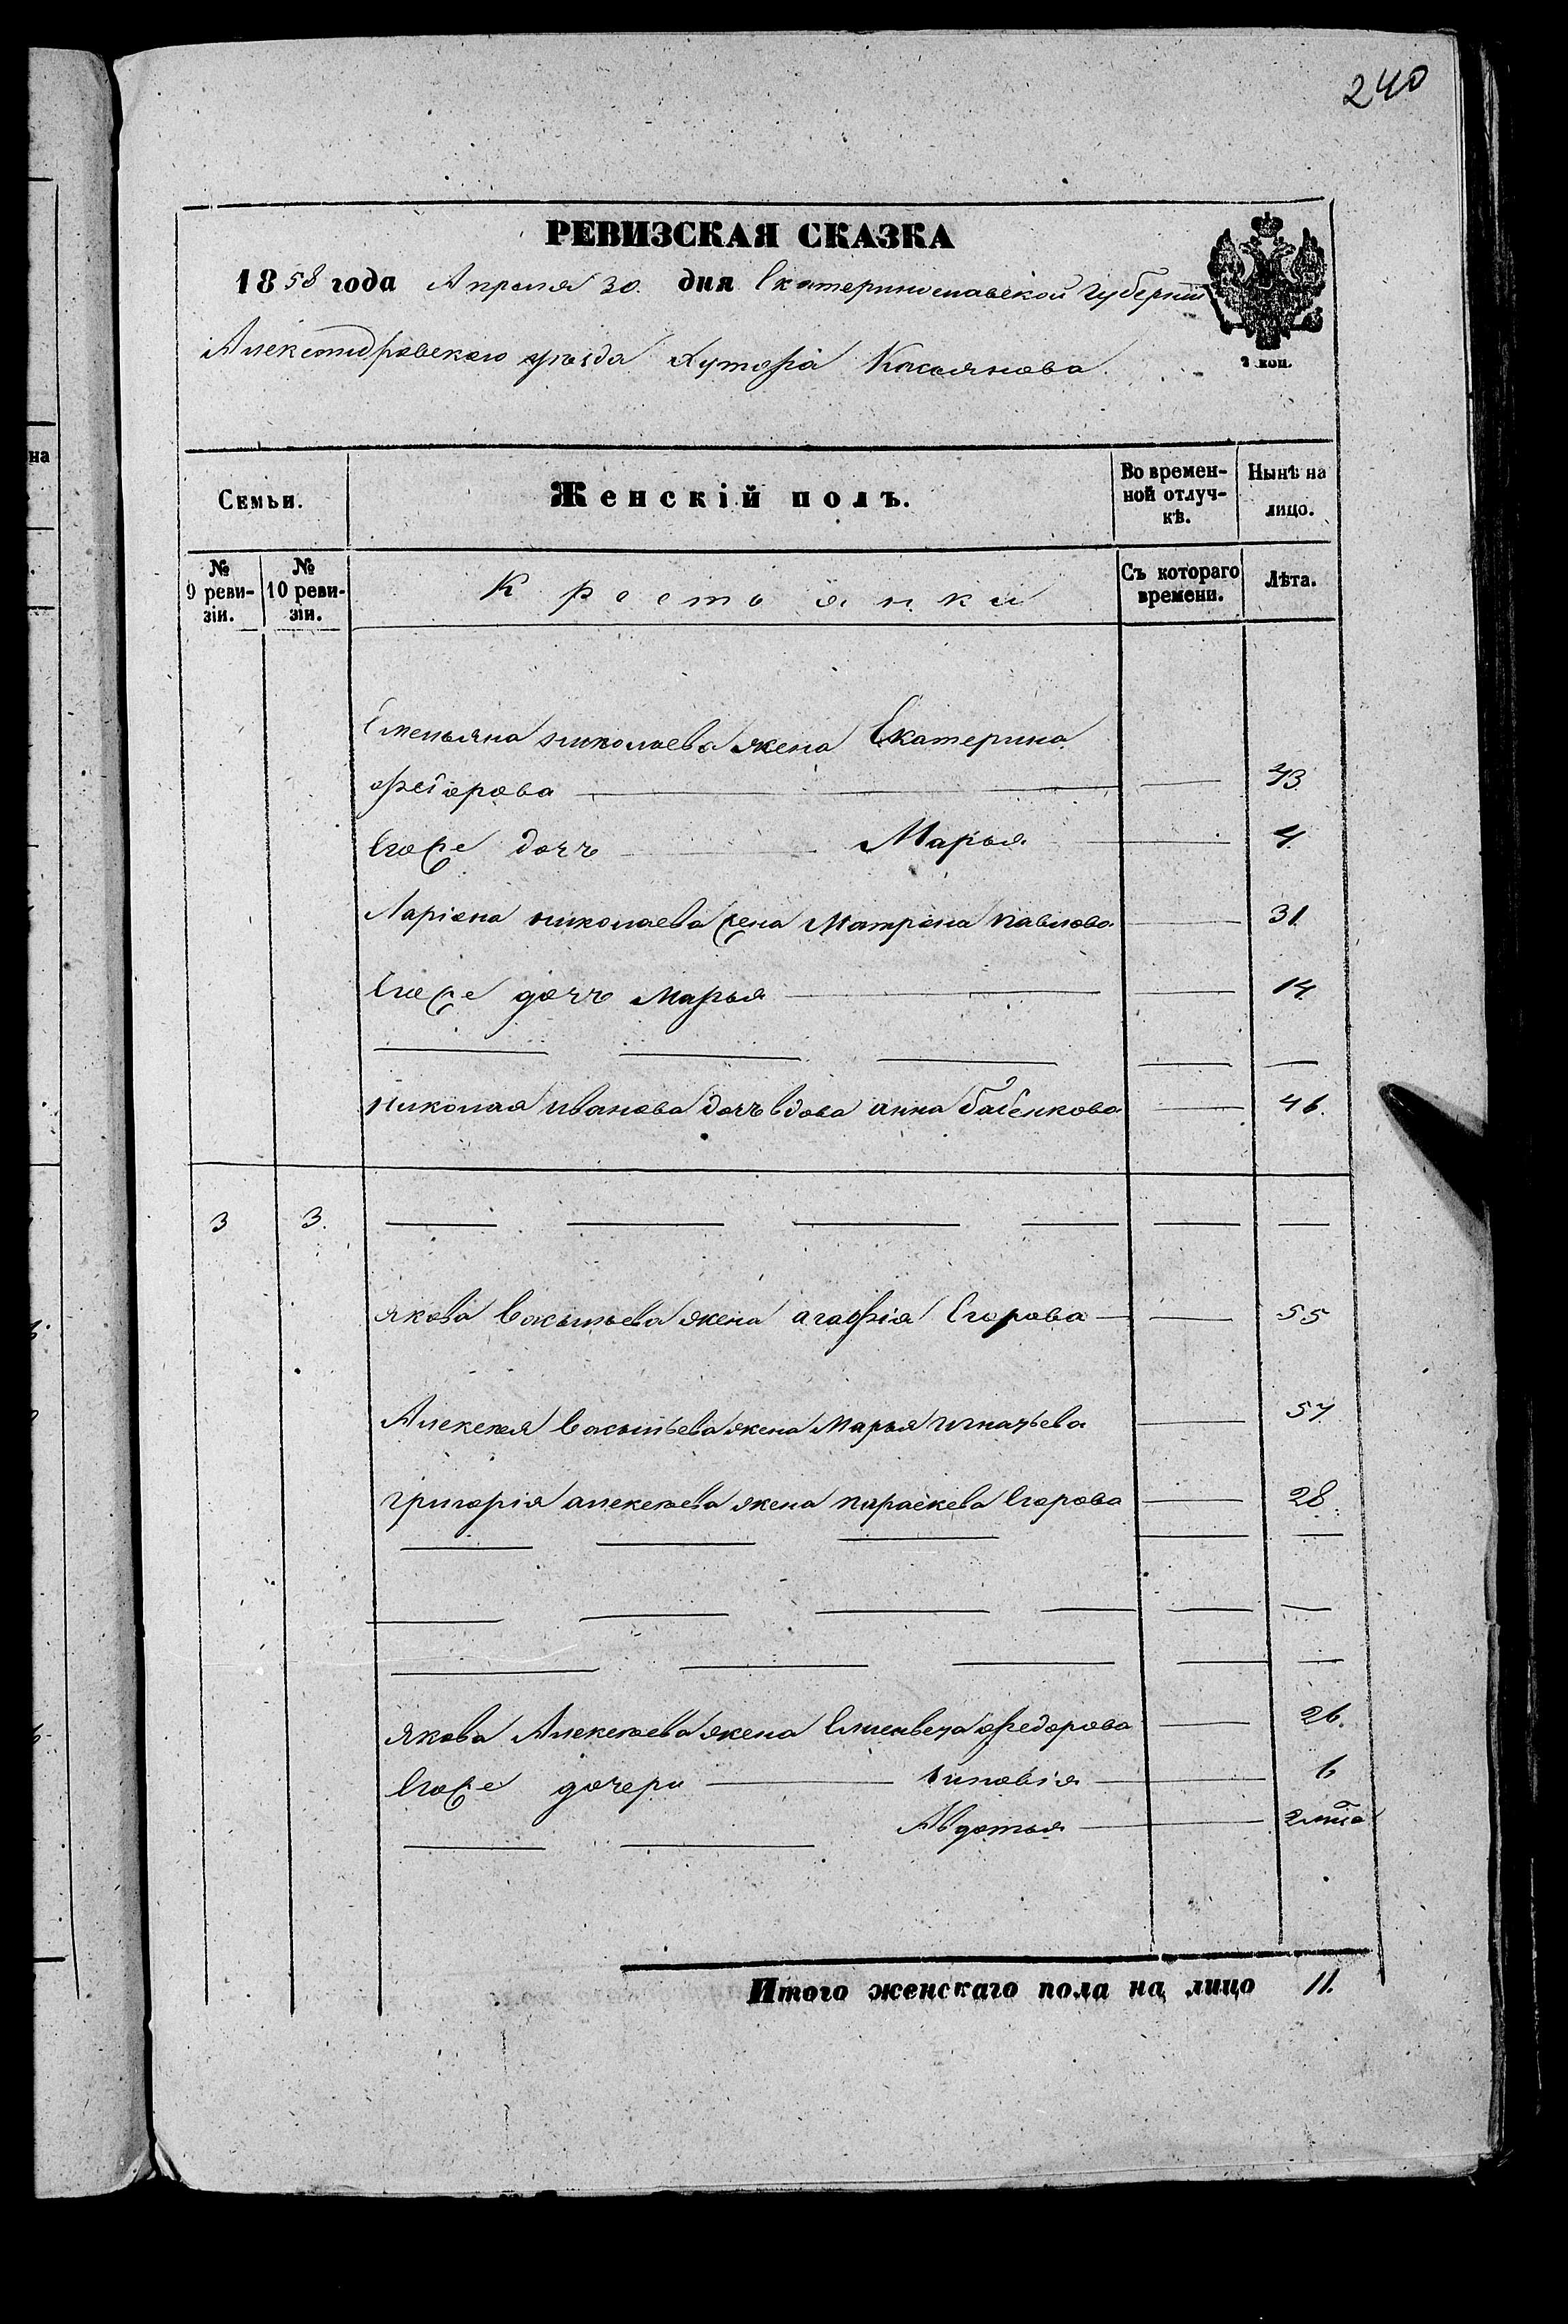 240
РЕВИЗСКАЯ СКАЗКА
1858 года Апреля 30. дня Екатеринославской Губернии
Александровского уезда Хутора Касьянова
2 коп.
Семьи. Женскій полъ. Во временной отлучкѣ. Нынѣ на лицо.
№ 9 ревизіи. № 10 ревизіи. Крестьянки Съ котораго времени. Лѣта.
Емельяна николаева жена Екатерина
Федорова 43
Егоже дочь Марья 4
Ларіона николаева жена Матрона павлова 31
Егоже дочь Марья 14
николая иванова дочь вдова анна бабенкова 46.
3 3.
якова Васильева жена агафія Егорова 55
Алексея Васильева жена Марья игнатьева 57
григорія алексеева жена параскева Егорова 28
якова Алексеева жена Елисавета федорова 26.
Егоже дочери Зиновія 6
Авдотья 2 мца
Итого женскаго пола на лицо 11.
на